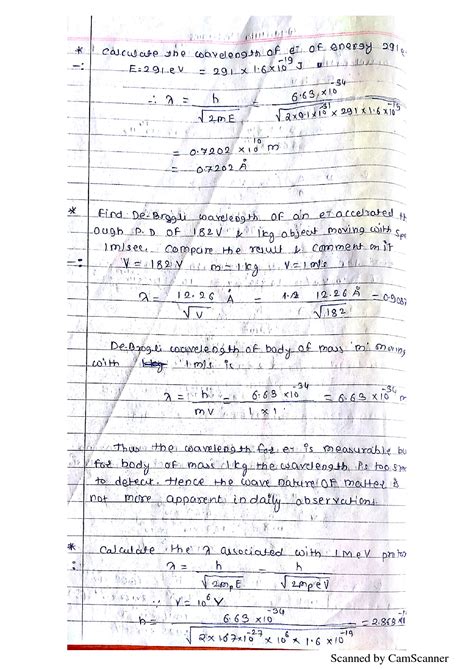 * Calculate the wavelength of e⁻ of energy 291 e
-: E = 291 eV = 291 × 1.6 × 10⁻¹⁹ J
∴ λ = h / √2mE = 6.63 × 10⁻³⁴ / √2×9.1×10⁻³¹ × 291 × 1.6 × 10⁻¹⁹
= 0.7202 × 10⁻¹⁰ m
= 0.7202 Å
* Find De-Brogli wavelength of an e⁻ accelrated th
ough P.D of 182V & 1kg object moving with spe
1m/sec. Compare the result & comment on it
-: V = 182 V m = 1 kg V = 1 m/s
λ = 12.26 / √V Å = 12.26 Å / √182 = 0.908
De-Brogli wavelength of body of mass 'm' moving
with 1 m/s is
λ = h / mv = 6.63 × 10⁻³⁴ / 1 × 1 = 6.63 × 10⁻³⁴ m
Thus the wavelength for e⁻ is measurable bu
for body of mass 1kg the wavelength is too sm
to detect. Hence the wave nature OF matter is
not more apparent in daily observation
* Calculate the λ associated with 1 MeV proton
-: λ = h / √2mₚE = h / √2mₚeV
∵ V = 10⁶ V
h = 6.63 × 10⁻³⁴ / √2 × 1.67 × 10⁻²⁷ × 10⁶ × 1.6 × 10⁻¹⁹ = 2.869 × 10
Scanned by CamScanner